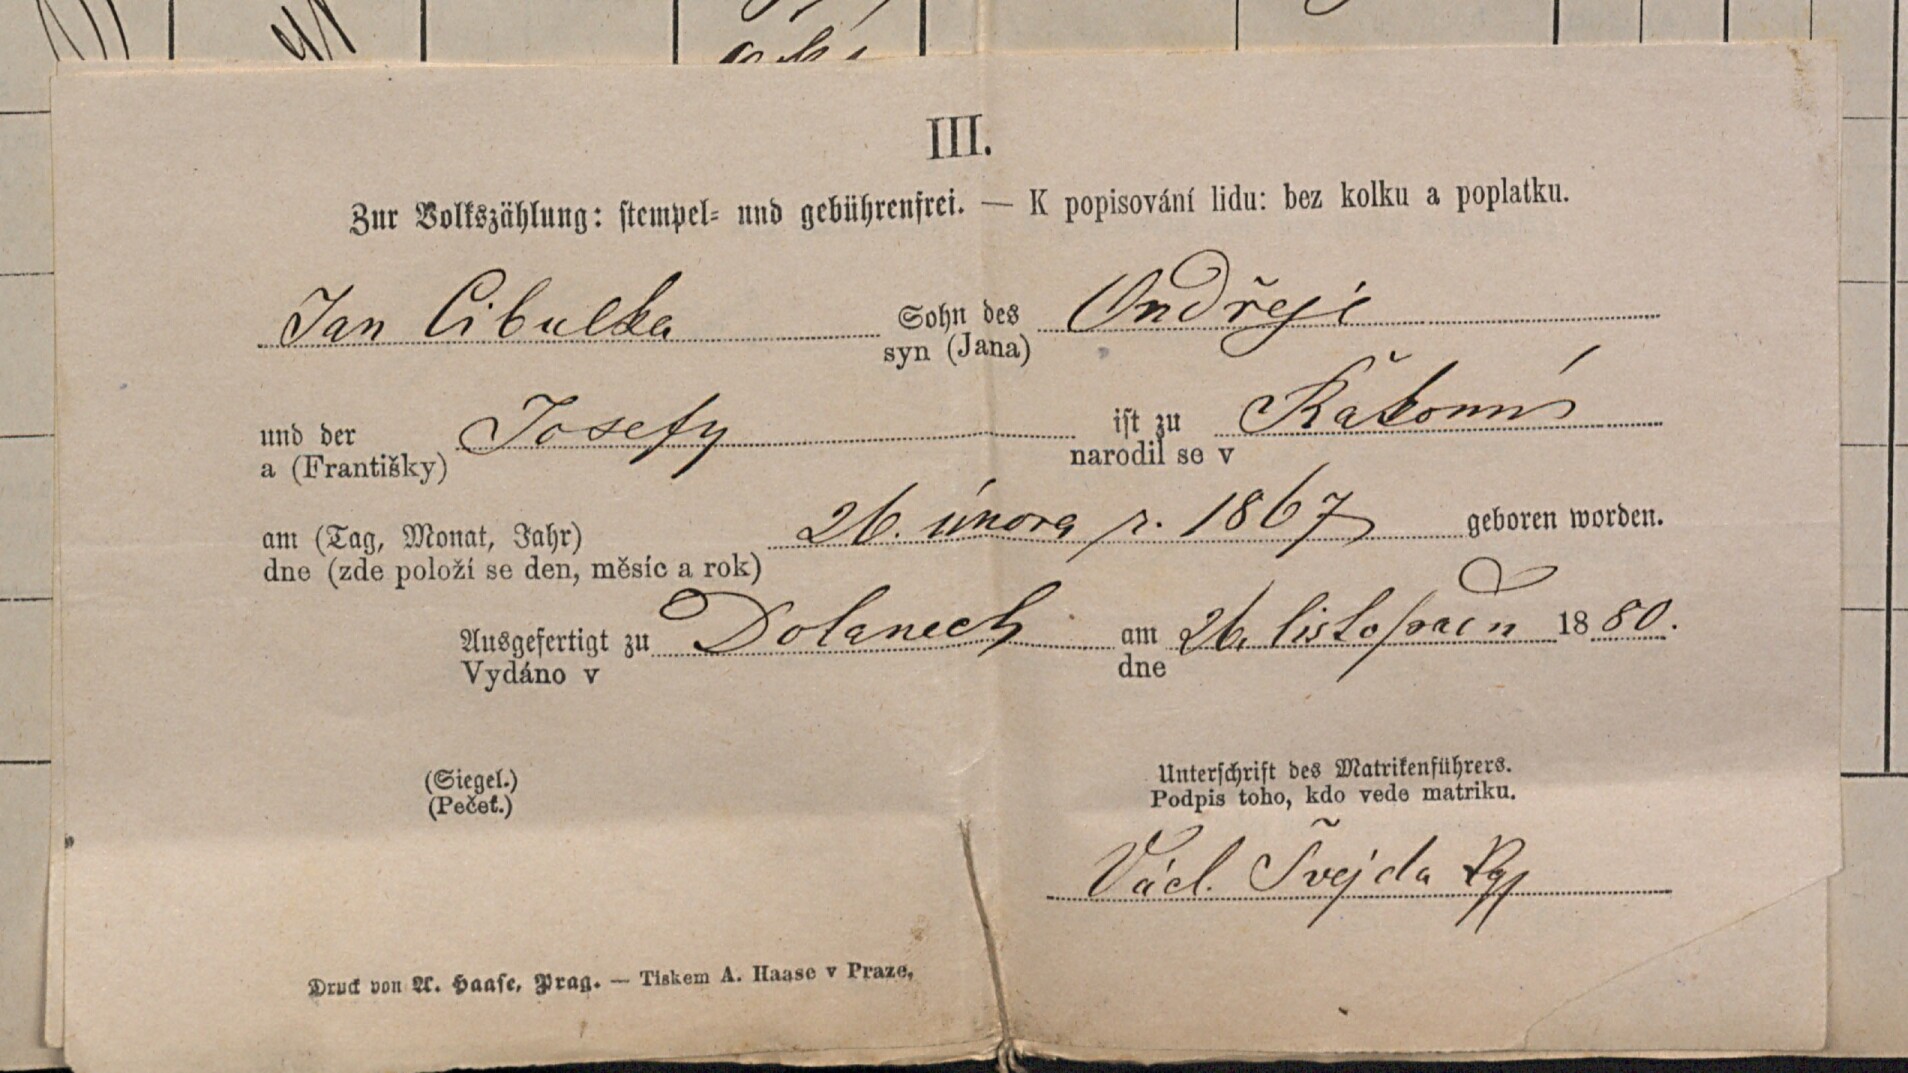 III.
Zur Volkszählung: stempel- und gebührenfrei. — K popisování lidu: bez kolku a poplatku.
Jan Cibulka Sohn des Ondřeje
syn (Jana)
und der Josefy ist zu
a (Františky) narodil se v
am (Tag, Monat, Jahr) 26. února r. 1867 geboren worden.
dne (zde položí se den, měsíc a rok)
Ausgefertigt zu Dolanech am 26. listopadu 1880.
Vydáno v dne
(Siegel.) Unterschrift des Matrikenführers.
(Pečeť.) Podpis toho, kdo vede matriku.
Václ. Švejda
Druck von A. Haase, Prag. — Tiskem A. Haase v Praze.